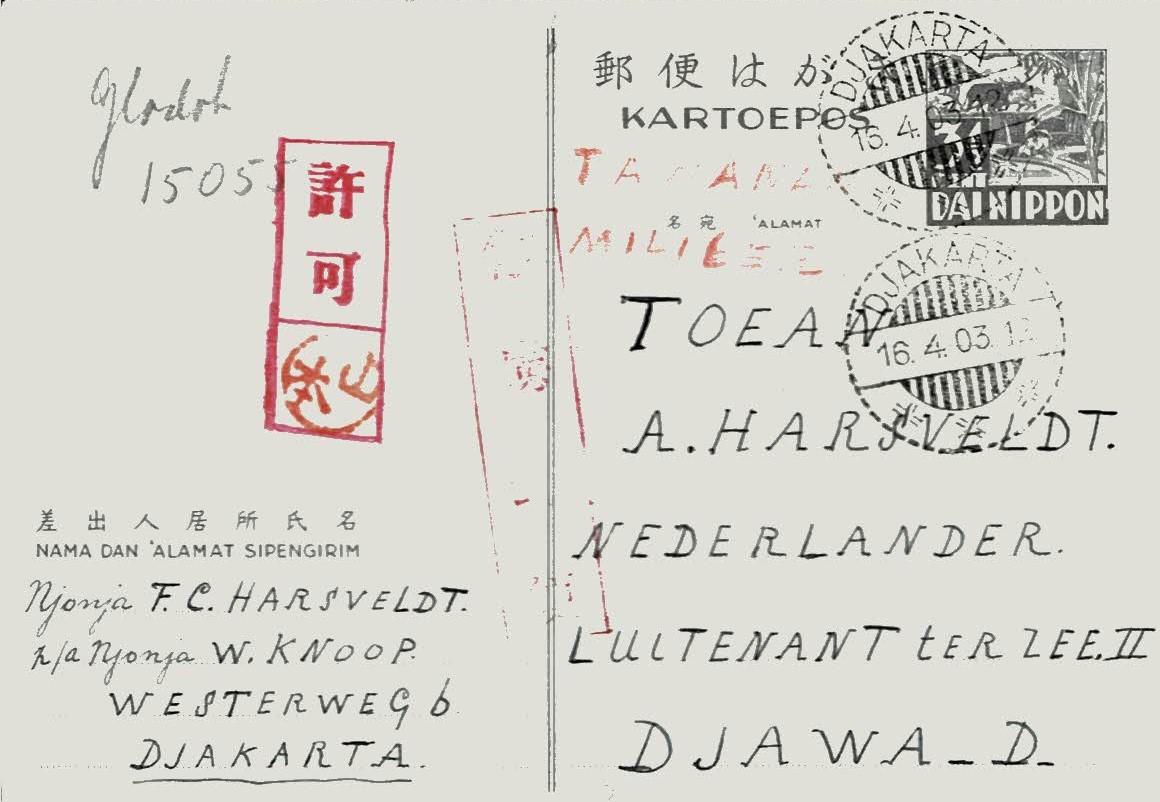 glodok
15055
許可
差出人居所氏名
NAMA DAN 'ALAMAT SIPENGIRIM
Njonja F. C. HARSVELDT.
p/a Njonja W. KNOOP.
WESTERWEG 6
DJAKARTA.
郵便はが
KARTOEPOS
DJAKARTA
16. 4. 03. 12
DAI NIPPON
名宛 'ALAMAT
DJAKARTA
16. 4. 03. 12
TOEAN
A. HARSVELDT.
NEDERLANDER.
LUITENANT ter ZEE. II
DJAWA_D_